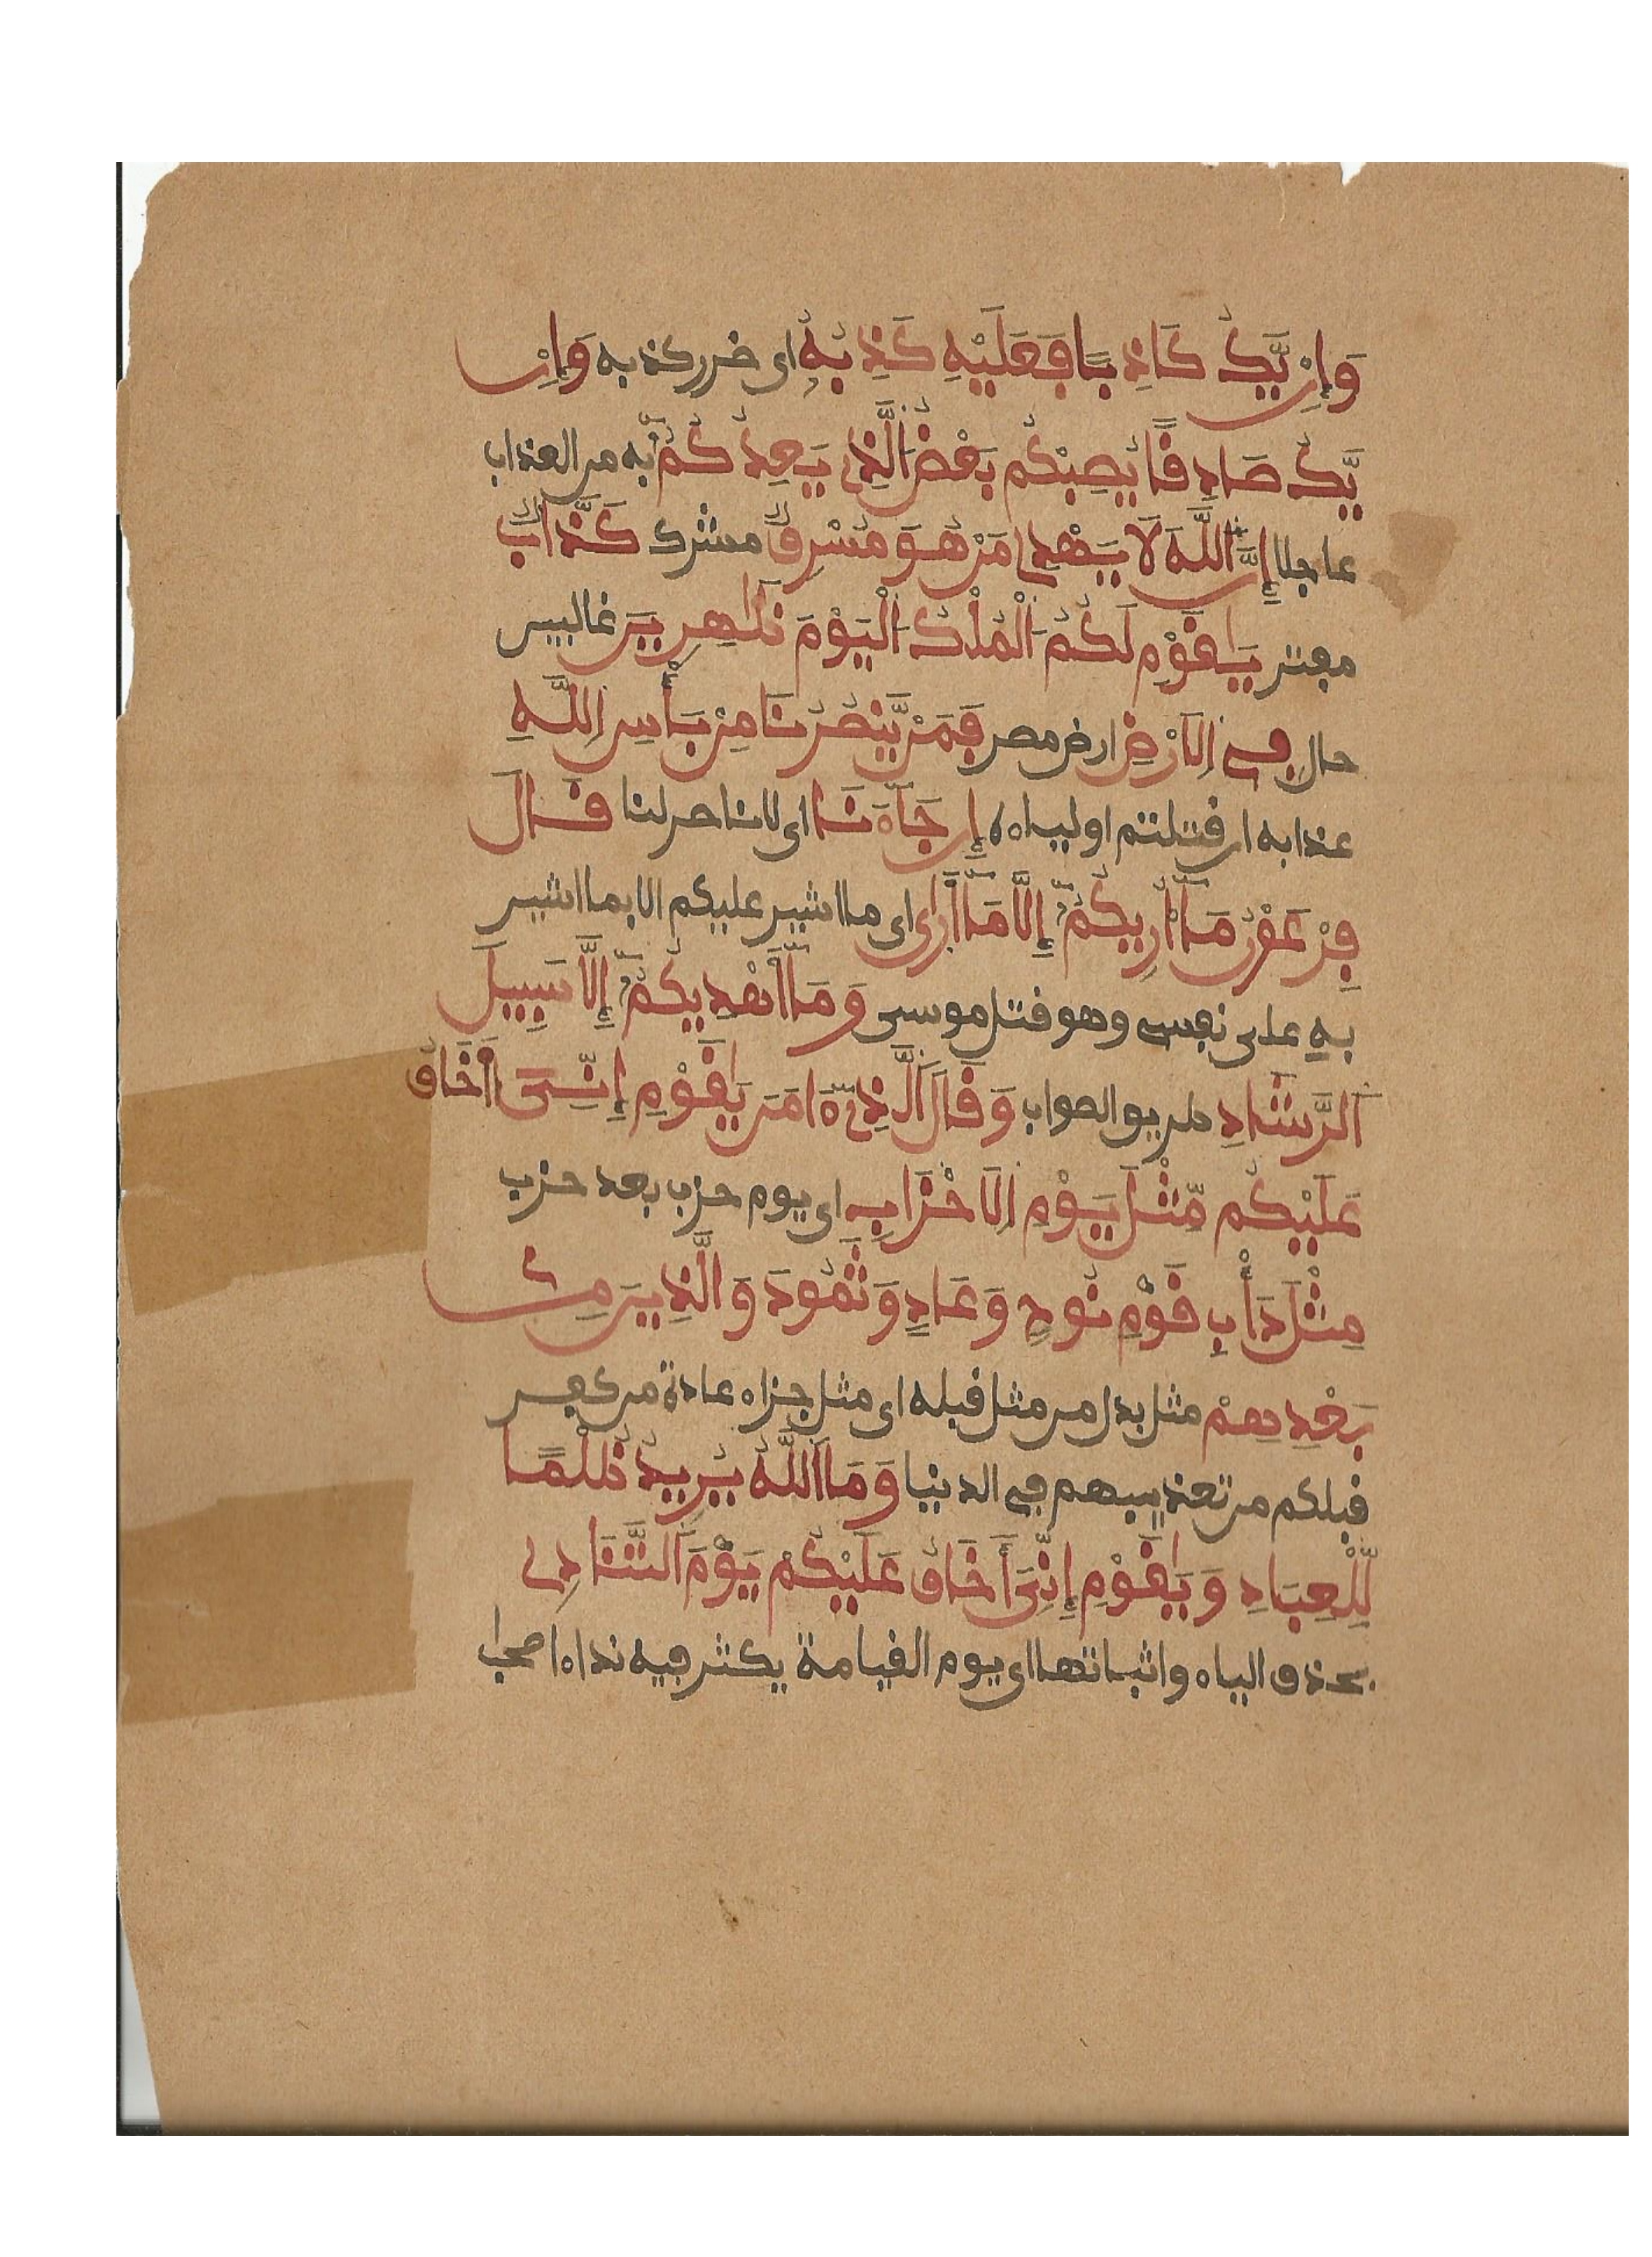 وَإِنْ يَّكُ كَاذِبًا فَعَلَيْهِ كَذِبُهُ اى ضرر كذبه وَإِنْ
يَّكُ صَادِقًا يُصِبْكُم بَعْضُ الَّذِى يَعِدُكُمُ به من العذاب
عاجلا إِنَّ اللَّهَ لَا يَهْدِى مَنْ هُوَ مُسْرِفٌ مشرك كَذَّابٌ
مفتر يَاقَوْمِ لَكُمُ الْمُلْكُ الْيَوْمَ ظَاهِرِينَ غالبين
حال فِى الَارْضِ ارض مصر فَمَنْ يَّنصُرُنَا مِنْ بَأْسِ اللَّهِ
عذابه ان قتلتم اولياءه إِن جَاءَنَا اى لا ناصر لنا قَالَ
فِرْعَوْنُ مَا أُرِيكُمُ إِلَّا مَا أَرَى اى ما اشير عليكم الا بما اشير
بهِ على نفسى وهو قتل موسى وَمَا أَهْدِيكُمُ إِلَّا سَبِيلَ
الرَّشَادِ طريق الصواب وَقَالَ الَّذِى ءَامَنَ يَاقَوْمِ إِنِّىَ أَخَافُ
عَلَيْكُم مِّثْلَ يَوْمِ الَاحْزَابِ اى يوم حزب بعد حزب
مِثْلَ دَأْبِ قَوْمِ نُوحٍ وَعَادٍ وَثَمُودَ وَالَّذِينَ مِنْ
بَعْدِهِمْ مثل بدل من مثل قبله اى مثل جزاء عادة من كفر
قبلكم من تعذيبهم فى الدنيا وَمَا اللَّهُ يُرِيدُ ظُلْمًا
لِّلْعِبَادِ وَيَاقَوْمِ إِنِّىَ أَخَافُ عَلَيْكُمْ يَوْمَ التَّنَادِى
بحذف الياء واثباتها اى يوم القيامة يكثر فيه نداء اصحاب